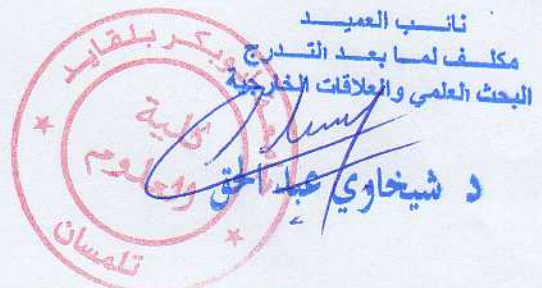 نائب العميد
مكلف لما بعد التدرج
البحث العلمي والعلاقات الخارجية
د شيخاوي عبد الحق
بوبكر بلقايد
كلية
والعلوم
تلمسان